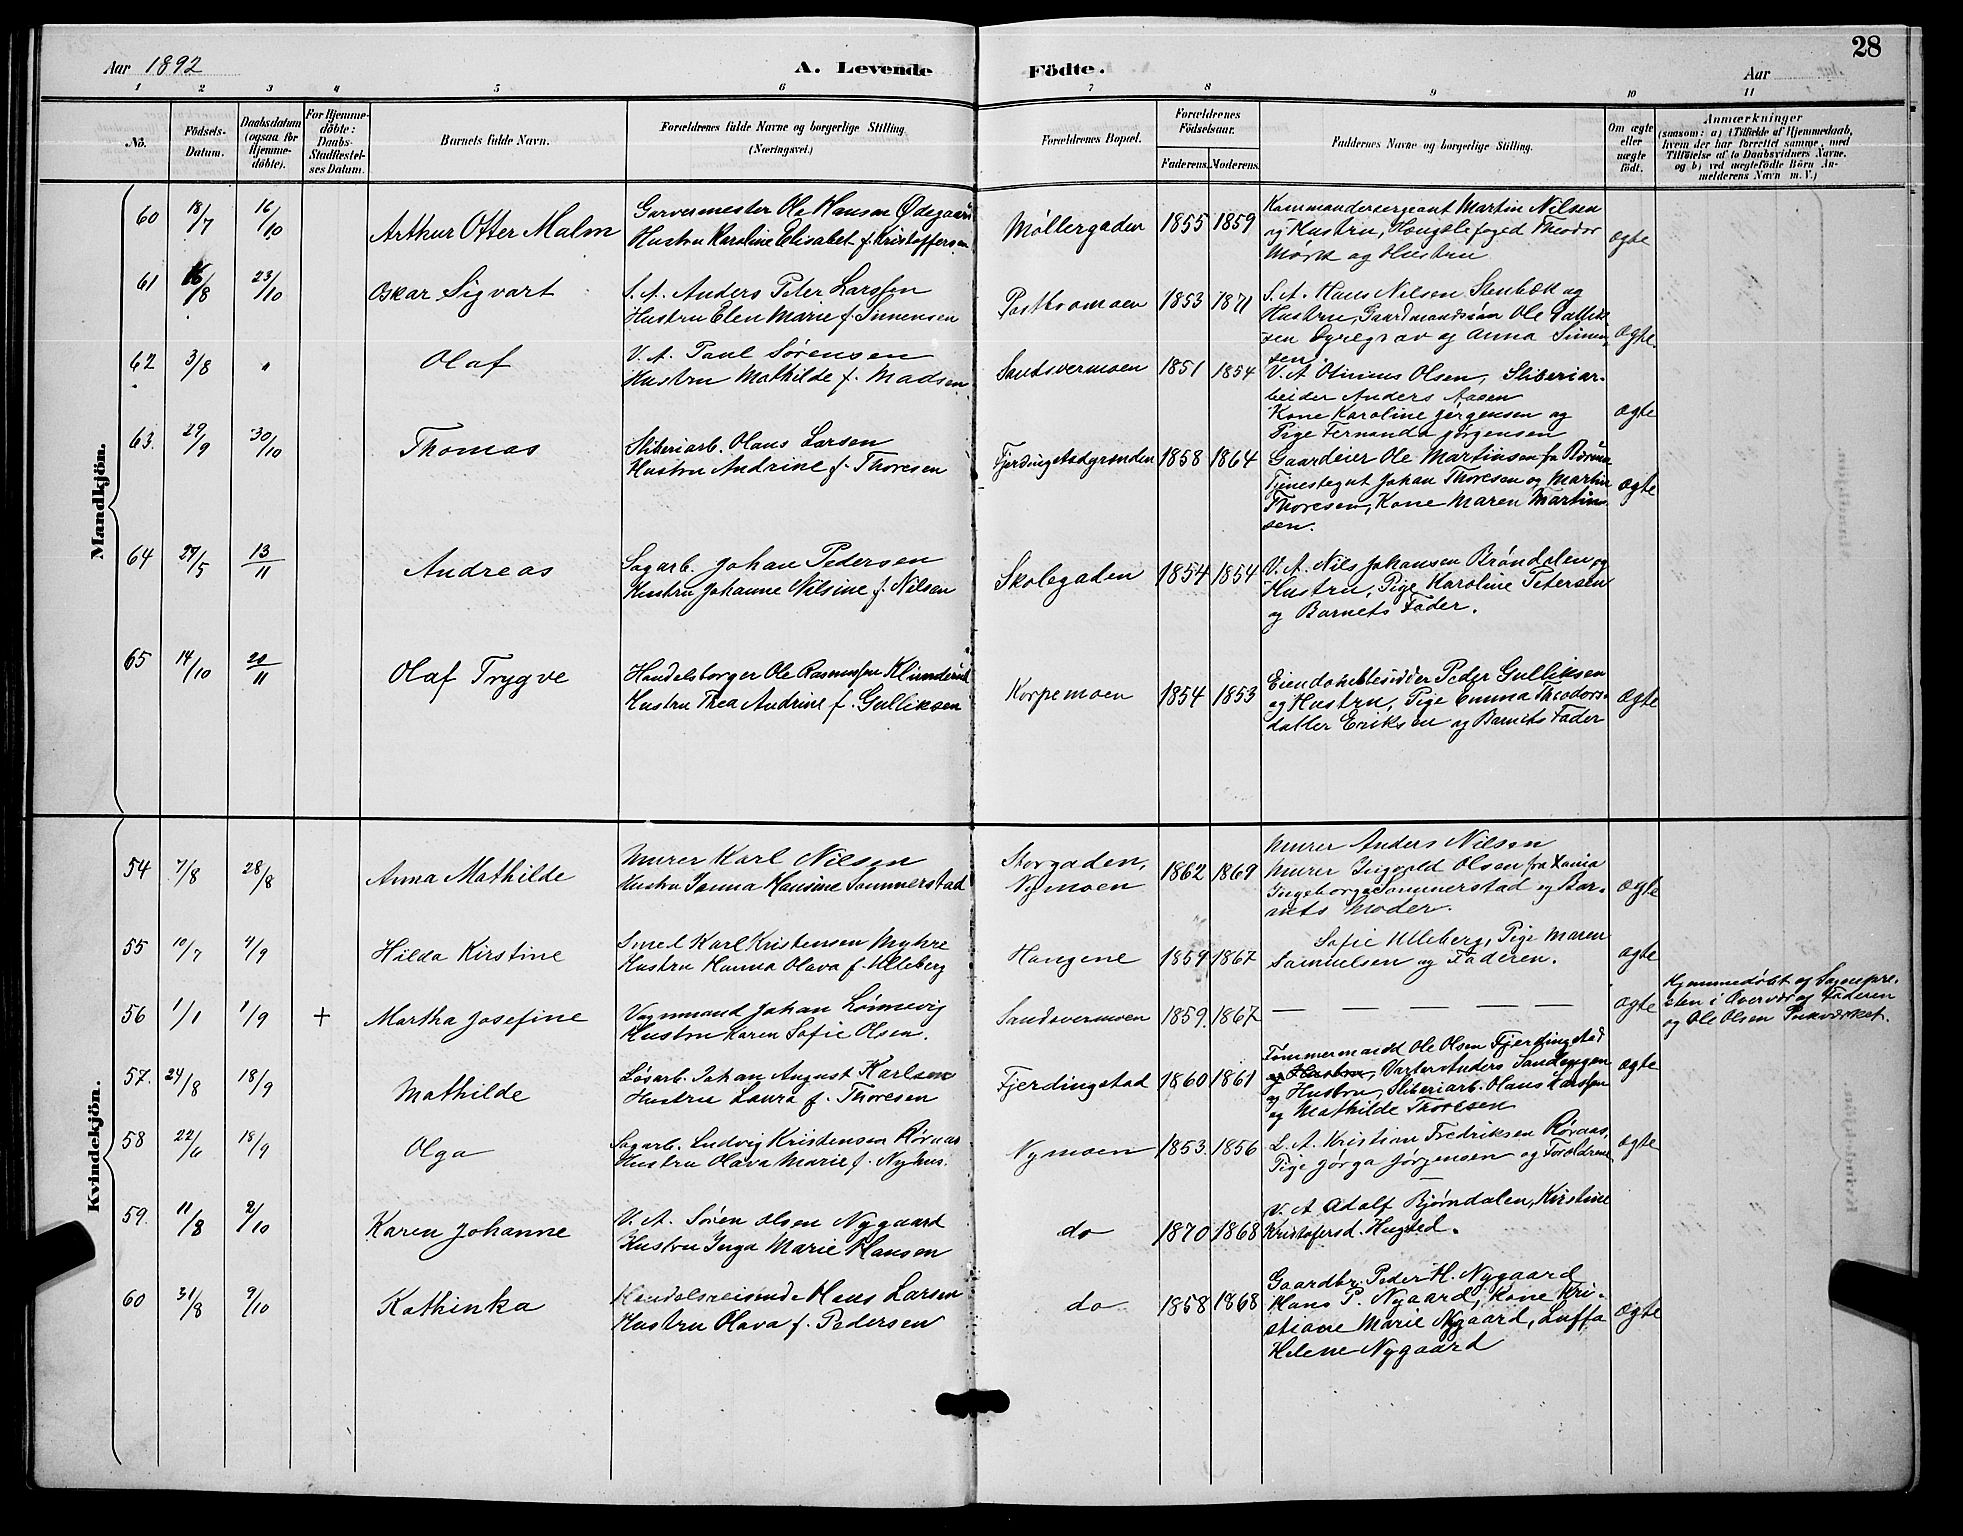 Aar 1892
A. Levende
Födte.
Aar
28
1 2 3 4 5 6 7 8 9 10 11
No.
Födsels-
Datum.
Daabsdatum
(ogsaa for
Hjemme-
döbte).
For Hjemme-
döbte:
Daabs-
Stadfæstel-
ses Datum.
Barnets fulde Navn.
Forældrenes fulde Navne og borgerlige Stilling
(Næringsvei.)
Forældrenes Bopæl.
Forældrenes
Födselsaar.
Faderens. Moderens.
Faddernes Navne og borgerlige Stilling.
Om ægte
eller
uægte
födt.
Anmærkninger
(saasom: a) i Tilfælde af Hjemmedaab,
hvem der har forrettet samme, med
Tilföielse af to Daabsvidners Navne,
og b) ved uægtefödte Börn An-
melderens Navn m. V.)
Mandkjön.
60 18/7 16/10 Arthur Otter Malm
Garvermester Ole Hansen Ødegaard
Hustru Karoline Elisabet f. Kristoffersen
Møllergaden 1855 1859
Kommandersergeant Martin Nilsen
og Hustru, Fængselsfoged Theodor
Mørk og Hustru
ægte
61 16/8 23/10 Oskar Sigvart
S. A. Anders Peter Larssen
Hustru Elen Marie f. Simensen
1853 1871
S. A. Hans Nilsen Stenbæk og
Hustru, Gaardmandssøn Ole
Dyregrav og Anna Simen-
sen
ægte.
62 3/8 " Olaf
V. A. Paul Sørensen
Hustru Mathilde f. Madsen
Sandsvermoen 1851 1854
V. A. Olsen, Sliberiar-
beider Anders Aasen
Kone Karoline Jørgensen og
Pige Fernanda Jørgensen
ægte
63. 29/9 30/10 Thomas
Sliberiarb. Olaus Larsen
Hustru Andrine f. Thoresen
Fjerdingstadgrunden 1858 1864
Gaardeier Ole Martinsen fra
Tjenestegut Johan Thoresen og Martin
Thoresen, Kone Maren Martin-
sen.
ægte
64 29/5 13/11 Andreas
Sagarb. Johan Pedersen
Hustru Johanne Nilsine f. Nilsen
Skolegaden 1854 1854
V. A. Nils Johansen Brøndalen og
Hustru, Pige Karoline Petersen
og Barnets Fader.
65 14/10 20/11 Olaf Trygve
Handelsborger Ole Rasmussen Klunderud
Hustru Thea Andrine f. Gulliksen
Korpemoen 1854 1853
Eiendombesidder Peder Gulliksen
og Hustru, Pige Emma Theodors-
datter Eriksen og Barnets Fader
ægte
Kvindekjön.
54 7/8 28/8 Anna Mathilde
Murer Karl Nilsen
Hustru Hansine Sommerstad
Storgaden,
Nymoen
1862 1869
Murer Anders Nilsen
Murer Ingvald Olsen fra Xania
Ingeborg Sommerstad og Bar-
nets Moder.
ægte
55 10/7 4/9 Hilda Kirstine
Smed Karl Kristensen Myhre
Hustru Hanna Olava f. Ulleberg
Haugene 1859 1867
Sofie Ulleberg, Pige Maren
Samuelsen og Faderen.
ægte
56 1/1 1/9 + Martha Josefine
Vognmand Johan Lønnevig
Hustru Karen Sofie Olsen.
Sandsvermoen 1859. 1867
— — — — —
ægte
Hjemmedøbt og Sognepre-
sten i Overvær og Faderen
og Ole Olsen Pukværket.
57. 24/8 18/9 Mathilde
Løsarb. Johan August Karlsen
Hustru Laura f. Thoresen
Fjerdingstad 1860 1861
Tømmermand Ole Olsen Fjerdingstad
og Hustru, Anders Sandengen
og Hustru, Sliberiarb. Olaus Larssen
og Mathilde Thoresen
ægte
58 22/6 18/9 Olga
Sagarb. Ludvig Kristensen Røraas
Hustru Olava Marie f. Nyhus.
Nymoen 1853. 1856
L. A. Kristian Fredriksen Røraas,
Pige Jørga Jørgensen og Forældrene
ægte
59. 11/8 2/10 Karen Johanne
V. A. Søren Olsen Nygaard
Hustru Inga Marie Hansen
do 1870 1868
V. A. Adolf Bjørndalen, Kirstine
Kristofersd. Hugsted.
60 31/8 9/10 Kathinka
Handelsreisende Hans Larsen
Hustru Olava f. Pedersen
do 1858 1868
Gaardbr. Peder H. Nygaard
Hans P. Nygaard, Kone Kri-
stiane Marie Nygaard, Luffa
Helene Nygaard
ægte